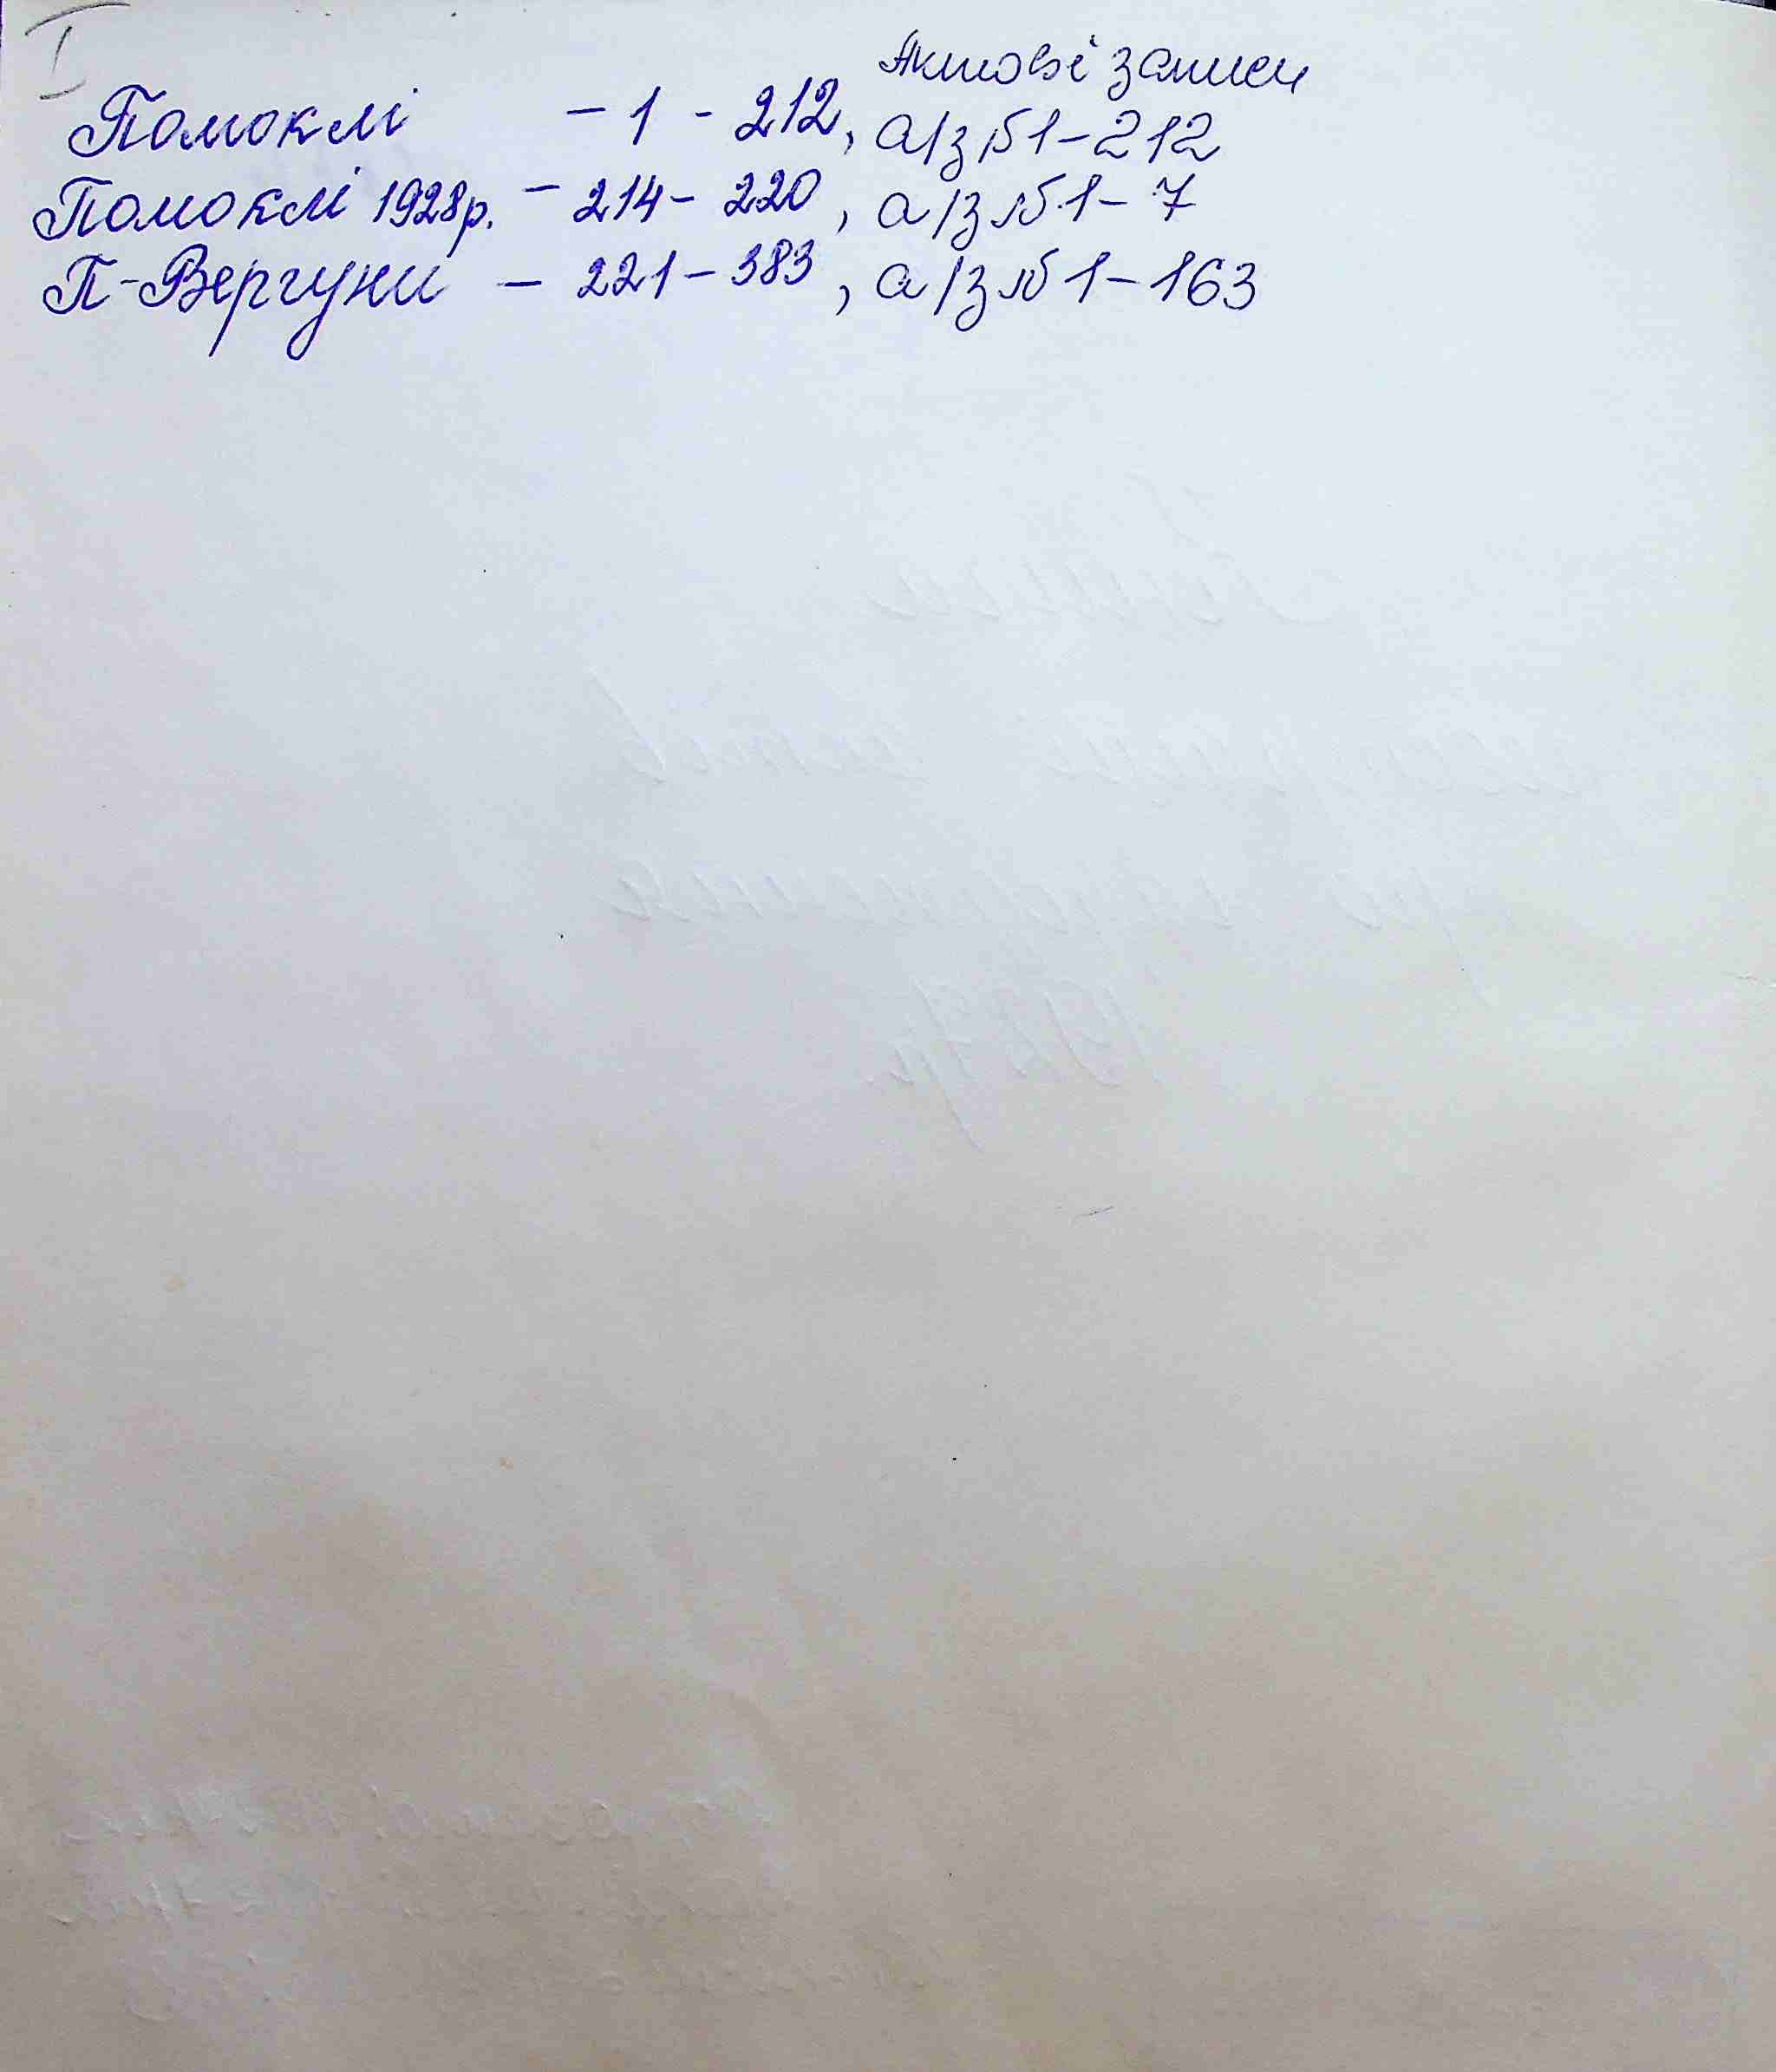 I
Актові записи
Помоклі – 1 - 212, а/з №1-212
Помоклі 1928р. – 214 – 220, а/з №1-7
П-Вергуни – 221 – 383, а/з №1-163